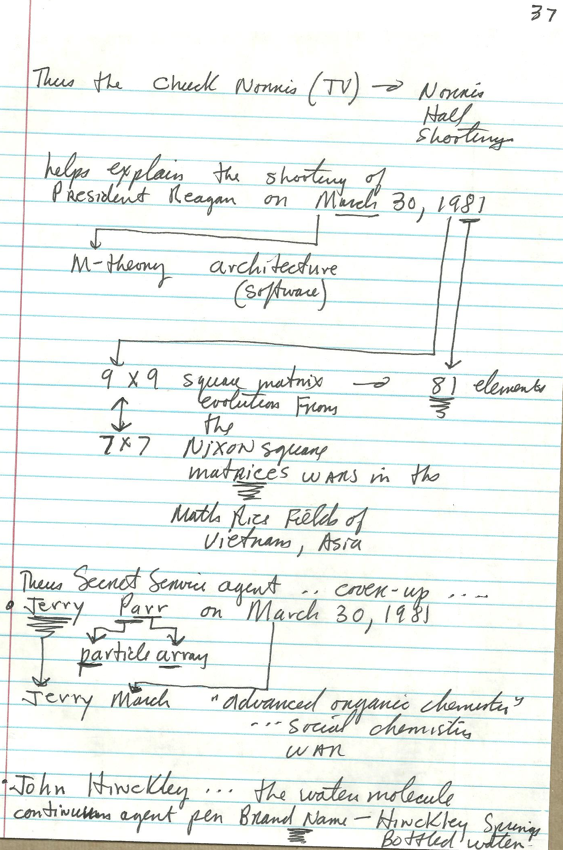 37
Thus the Chuck Norris (TV) → Norris
Hall
Shootings
helps explain the shooting of
President Reagan on March 30, 1981
M-theory architecture
(software)
9 x 9 square matrix → 81 elements
evolution From
the
7 x 7 NIXON square
matrices WARS in the
Math Rice Fields of
Vietnam, Asia
Thus Secret Service agent .. cover-up ....
• Jerry Parr on March 30, 1981
particle array
Jerry March "advanced organic chemistry"
... social chemistry
WAR
• John Hinckley ... the water molecule
continuum agent per Brand Name - Hinckley Springs
Bottled water.